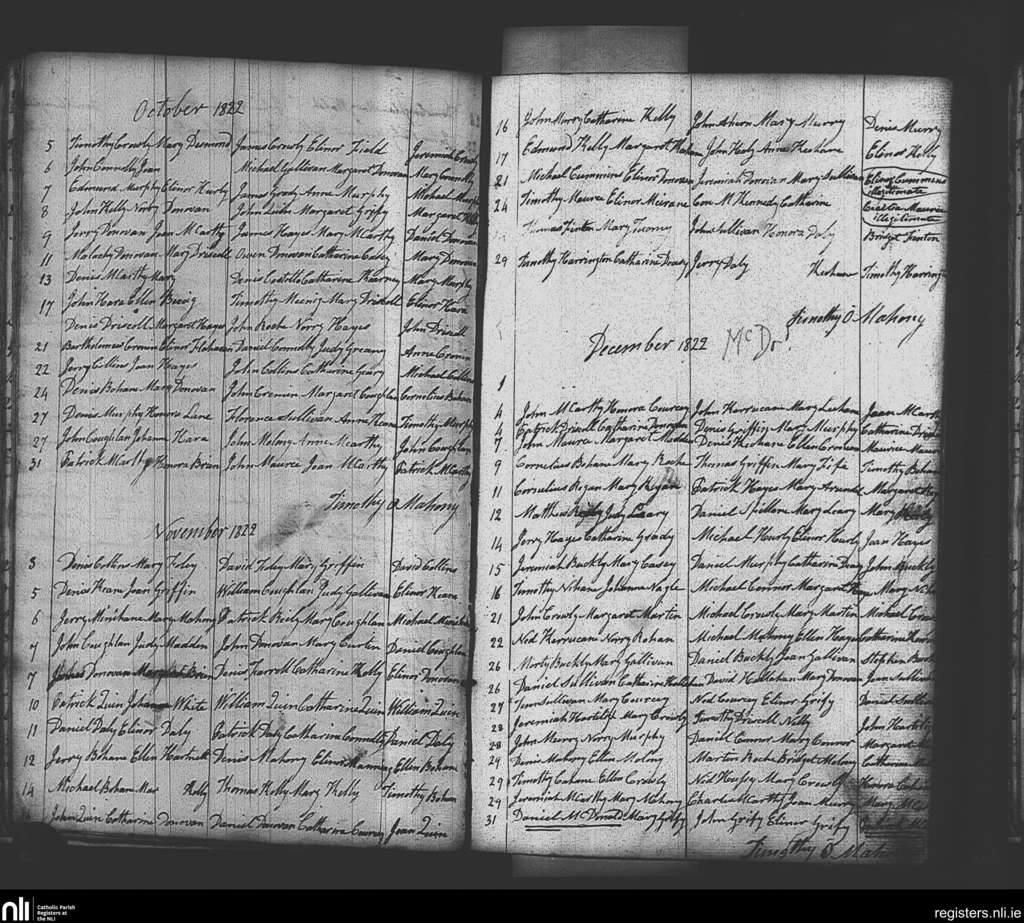 October 1822
5 Timothy Crowly Mary Desmond James Crowly Elinor Field Jeremiah Crowly
6 John Connolly Joan Michael Gallivan Margaret Donovan Mary Connolly
7 Edmund Murphy Elinor Hurly James Grady Anne Murphy Michael Murphy
8 John Kelly Norry Donovan John Margaret Grify Margaret
9 Jerry Donovan Joan McCarthy James Hayes Mary McCarthy Daniel Donovan
11 Donovan Mary Driscoll Owen Donovan Catharine Mary Donovan
13 Denis McCarthy Mary Denis Costello Catharine Kearney Mary
17 John Hara Ellen Timothy Mary Driscoll Elinor Hara
Denis Driscoll Margaret Hayes John Roche Norry Hayes John Driscoll
21 Bartholomew Cronin Elinor Daniel Connolly Judy Greany Anne Cronin
22 Jerry Collins Joan Hayes John Collins Catharine Geary Michael Collins
24 Denis Bohane Mary Donovan John Cremin Margaret Coughlan Cornelius Bohane
27 Denis Murphy Honora Lane Florence Sullivan Anne Timothy Murphy
27 John Coughlan Johanna Hara John Molony Anne McCarthy John Coughlan
31 Patrick McCarthy Honora Brian John Maurce Joan McCarthy Patrick McCarthy
Timothy O Mahony
November 1822
3 Denis Collins Mary Foley David Foley Mary Griffin David Collins
5 Denis Keane Joan Griffin William Coughlan Judy Gallivan Elinor Keane
6 Jerry Minihane Mary Mahony Patrick Mary Coughlan Michael
7 John Coughlan Judy Madden John Donovan Mary Curtin Daniel Coughlan
7 Donovan Brien Denis Farrell Catharine Kelly Elinor Donovan
10 Patrick Quin Johanna White William Quin Catharine Quin William Quin
11 Daniel Daly Elinor Daly Patrick Daly Catharine Connolly Daniel Daly
12 Jerry Bohane Ellen Hartnett Denis Mahony Elinor Ellen Bohane
14 Michael Bohane Mary Thomas Kelly Mary Kelly Timothy Bohane
John Quin Catharine Donovan Daniel Donovan Catharine Joan Quin
16 John Murry Catharine Kelly John Ahern Mary Murry Denis Murry
17 Edmund Kelly Margaret John Anne Keohane Elinor Kelly
21 Michael Cummins Elinor Donovan Jeremiah Donovan Mary Sullivan Elinor Cummins
illegitimate
24 Timothy Maurce Elinor Con McKennedy Catharine Maurce
illegitimate
Thomas Finton Mary Twomy John Sullivan Honora Daly Bridget Finton
29 Timothy Harrington Catharine Jerry Daly Keohane Timothy Harrington
Timothy O Mahony
December 1822 McDr
1
4 John McCarthy Honora Courcey John Kerrucane Mary Joan McCarthy
4 Patrick Driscoll Catharine Donovan Denis Griffin Mary Murphy Catharine
7 John Maurce Margaret Madden Denis Keohane Ellen Cronin Maurice
9 Cornelius Bohane Mary Roche Thomas Griffin Mary Fife Timothy Bohane
11 Cornelius Regan Mary Regan Patrick Hayes Mary Margaret
12 Matthew Judy Leary Daniel Spillane Mary Leary Mary
14 Jerry Hayes Catharine Grady Michael Hurly Elinor Hurly Joan Hayes
15 Jeremiah Buckly Mary Casey Daniel Murphy Catharine John Buckly
16 Timothy Nihane Johanna Nagle Michael Connor Margaret Mary
21 John Crowly Margaret Martin Michael Crowly Mary Martin Michael
22 Ned Kerrucane Norry Rohan Michael Mahony Ellen Hayes Catharine
26 Morty Buckly Mary Gallivan Daniel Buckly Joan Gallivan Stephen
26 Daniel Sullivan Catharine David Mary Donovan Joan Sullivan
27 Tim Sullivan Mary Courcey Ned Courcey Elinor Grify Daniel
28 Jeremiah Mary Crowly Timothy Driscoll Nelly John
28 John Murry Norry Murphy Daniel Connor Mary Connor Margaret
29 Denis Mahony Ellen Molony Martin Roche Bridget Molony Catharine
29 Timothy Ellen Crowly Ned Mary Crowly Honora
29 Jeremiah McCarthy Mary Mahony Charles McCarthy Joan Murry Mary
31 Daniel McDonald Mary Grify John Grify Elinor Grify
Timothy O Mahony
nli
Catholic Parish
Registers at
the NLI
registers.nli.ie